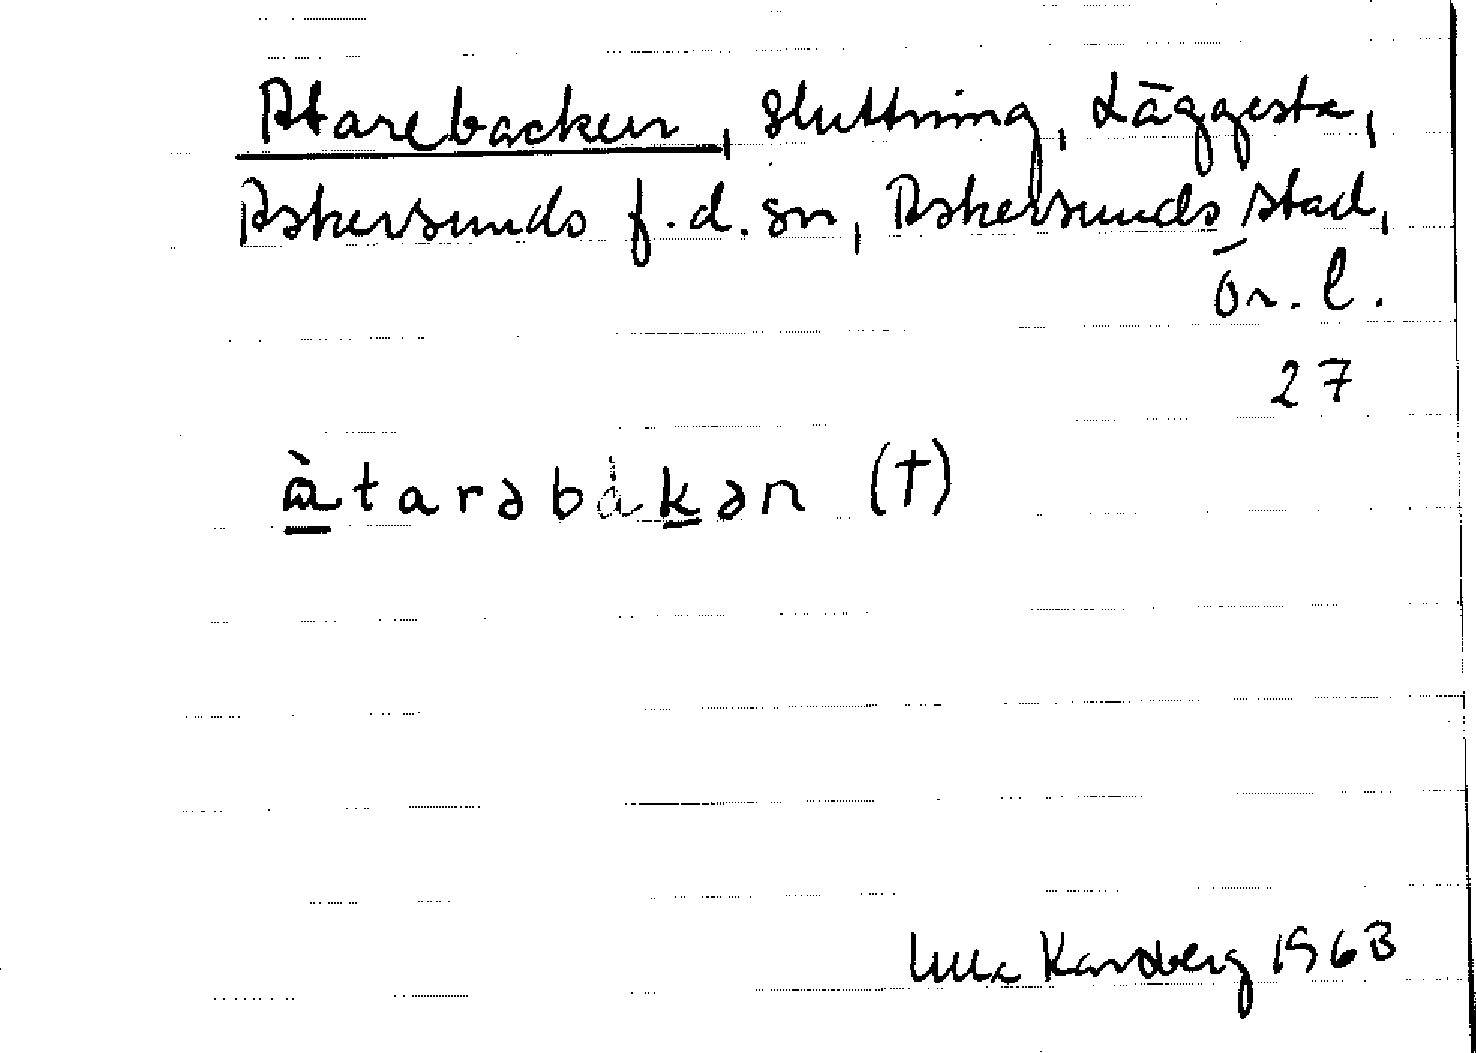 Atarebacken, sluttning, Läggesta,
Askersunds f.d. sn, Askersunds stad,
Ör. l.
27
à̱tarəbàḵən (†)
Ulla 1963